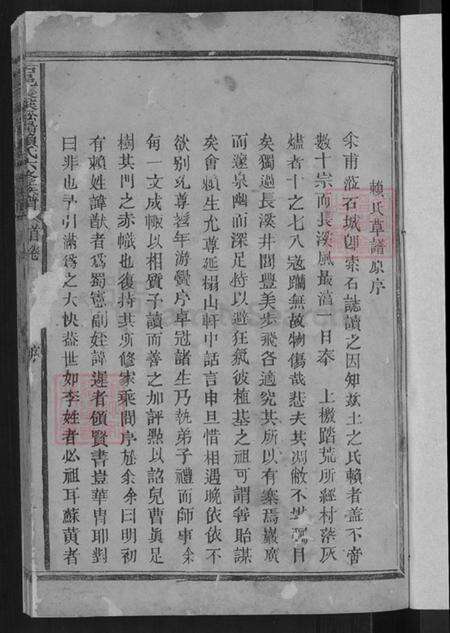 賴氏草譜原序
余甫蒞石城卽索石誌讀之因知茲土之氏賴者蓋不啻
數十宗而長溪風最溥一日奉 上檄踏荒所經村落灰
燼者十之七八寇躪無故物傷哉悲夫其凋敝不堪矚目
矣獨過長溪井閭豐美步飛各適究其所以有寨焉巖廣
而邃泉幽而深足恃以避狂氛彼植基之祖可謂善貽謀
矣會賴生允尊延榻山軒中話言申旦惜相遇晚依依不
欲別允尊髫年游黌序卓冠諸生乃執弟子禮而師事余
每一文成輒以相質予讀而善之加評點以詔兒曹奐足
樹其門之赤幟也復持其所修家乘問序於余余曰明初
有賴姓諱猷者為蜀憲副姪諱遲者領賢書豈華冑耶對
曰非也早引滿為之大快蓋世如李姓者必祖耳蘇黃者
賴氏六修族譜
首卷
序